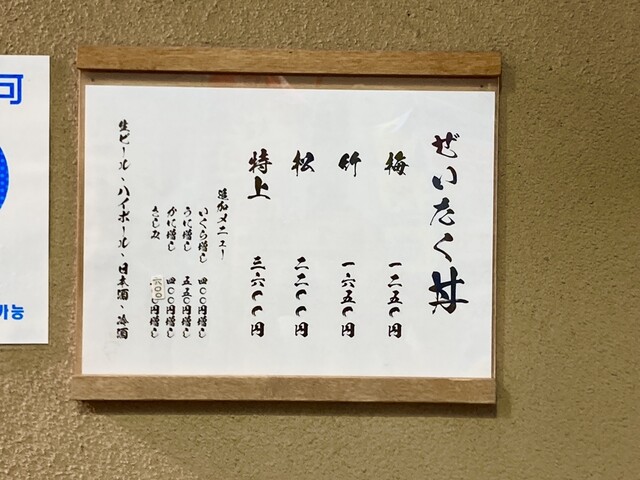 ぜいたく丼
梅 一二五〇円
竹 一六五〇円
松 二二〇〇円
特上 三六〇〇円
追加メニュー
いくら増し 四〇〇円増し
うに増し 五五〇円増し
かに増し 四〇〇円増し
さしみ 六〇〇円増し
生ビール、ハイボール、日本酒、冷酒
可
가능